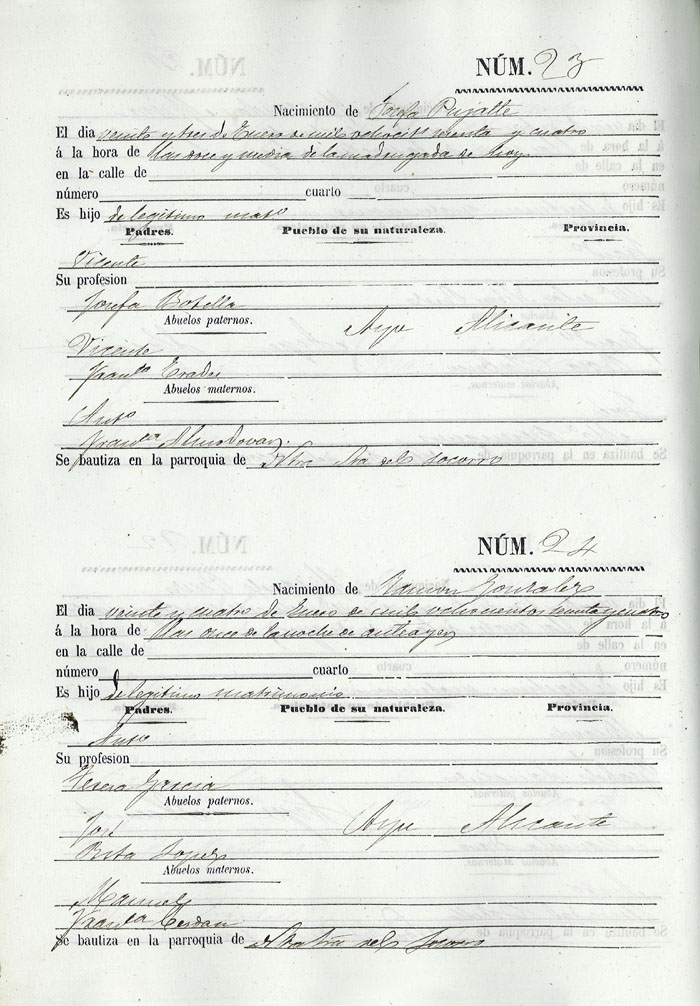 NÚM. 23
Nacimiento de Josefa Pujalte
El dia veinte y tres de Enero de mil ochocits y cuatro
á la hora de las doce y media de la madrugada de hoy
en la calle de
número cuarto
Es hijo de legitimo mato
Padres. Pueblo de su naturaleza. Provincia.
Vicente
Su profesion
Josefa Botella
Abuelos paternos. Aspe Alicante
Vicente
Franca
Abuelos maternos.
Anto
Franca Almodovar
Se bautiza en la parroquia de Ntra Sra del Socorro
NÚM. 24
Nacimiento de Ramon Gonzalez
El dia veinte y cuatro de Enero de mil ochocientos y cuatro
á la hora de las once de la noche de anteayer
en la calle de
número cuarto
Es hijo de legitimo matrimonio
Padres. Pueblo de su naturaleza. Provincia.
Anto
Su profesion
Teresa Garcia
Abuelos paternos.
José Aspe Alicante
Rita Lopez
Abuelos maternos.
Manuel
Franca Cerdan
Se bautiza en la parroquia de Ntra Sra del Socorro